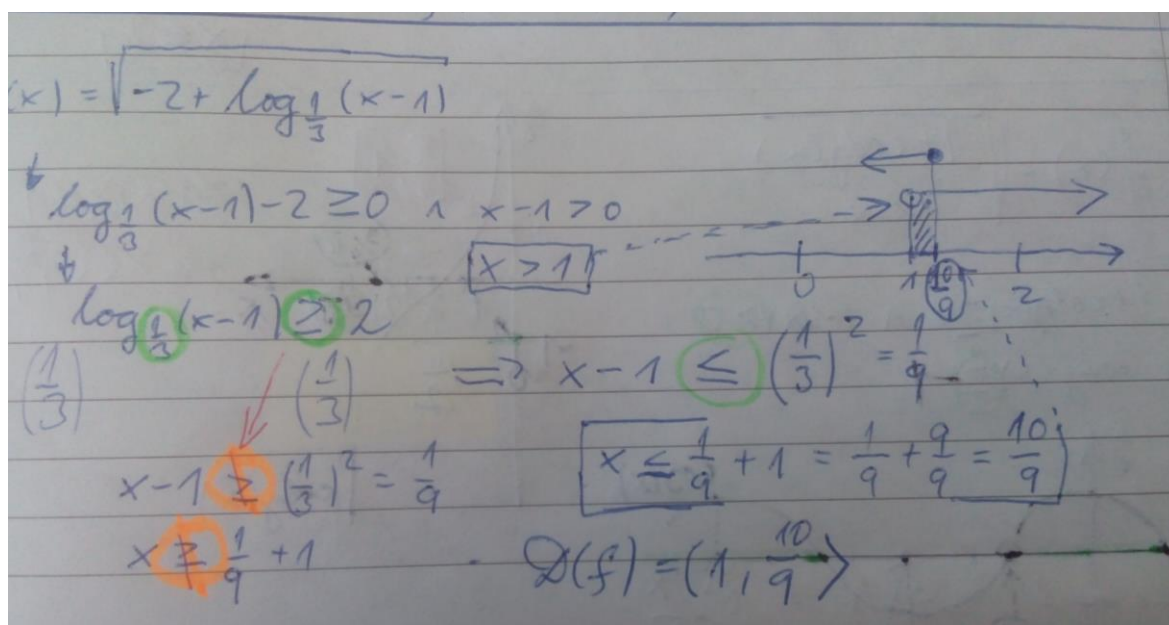 (x) = √(-2 + log_{1/3} (x-1))
log_{1/3} (x-1) - 2 ≥ 0 ∧ x-1 > 0
x > 1
0 1 10/9 2
log_{1/3} (x-1) ≥ 2
(1/3) (1/3) ⟹ x - 1 ≤ (1/3)^2 = 1/9
x-1 ≥ (1/3)^2 = 1/9
x ≤ 1/9 + 1 = 1/9 + 9/9 = 10/9
x ≥ 1/9 + 1
D(f) = (1, 10/9⟩